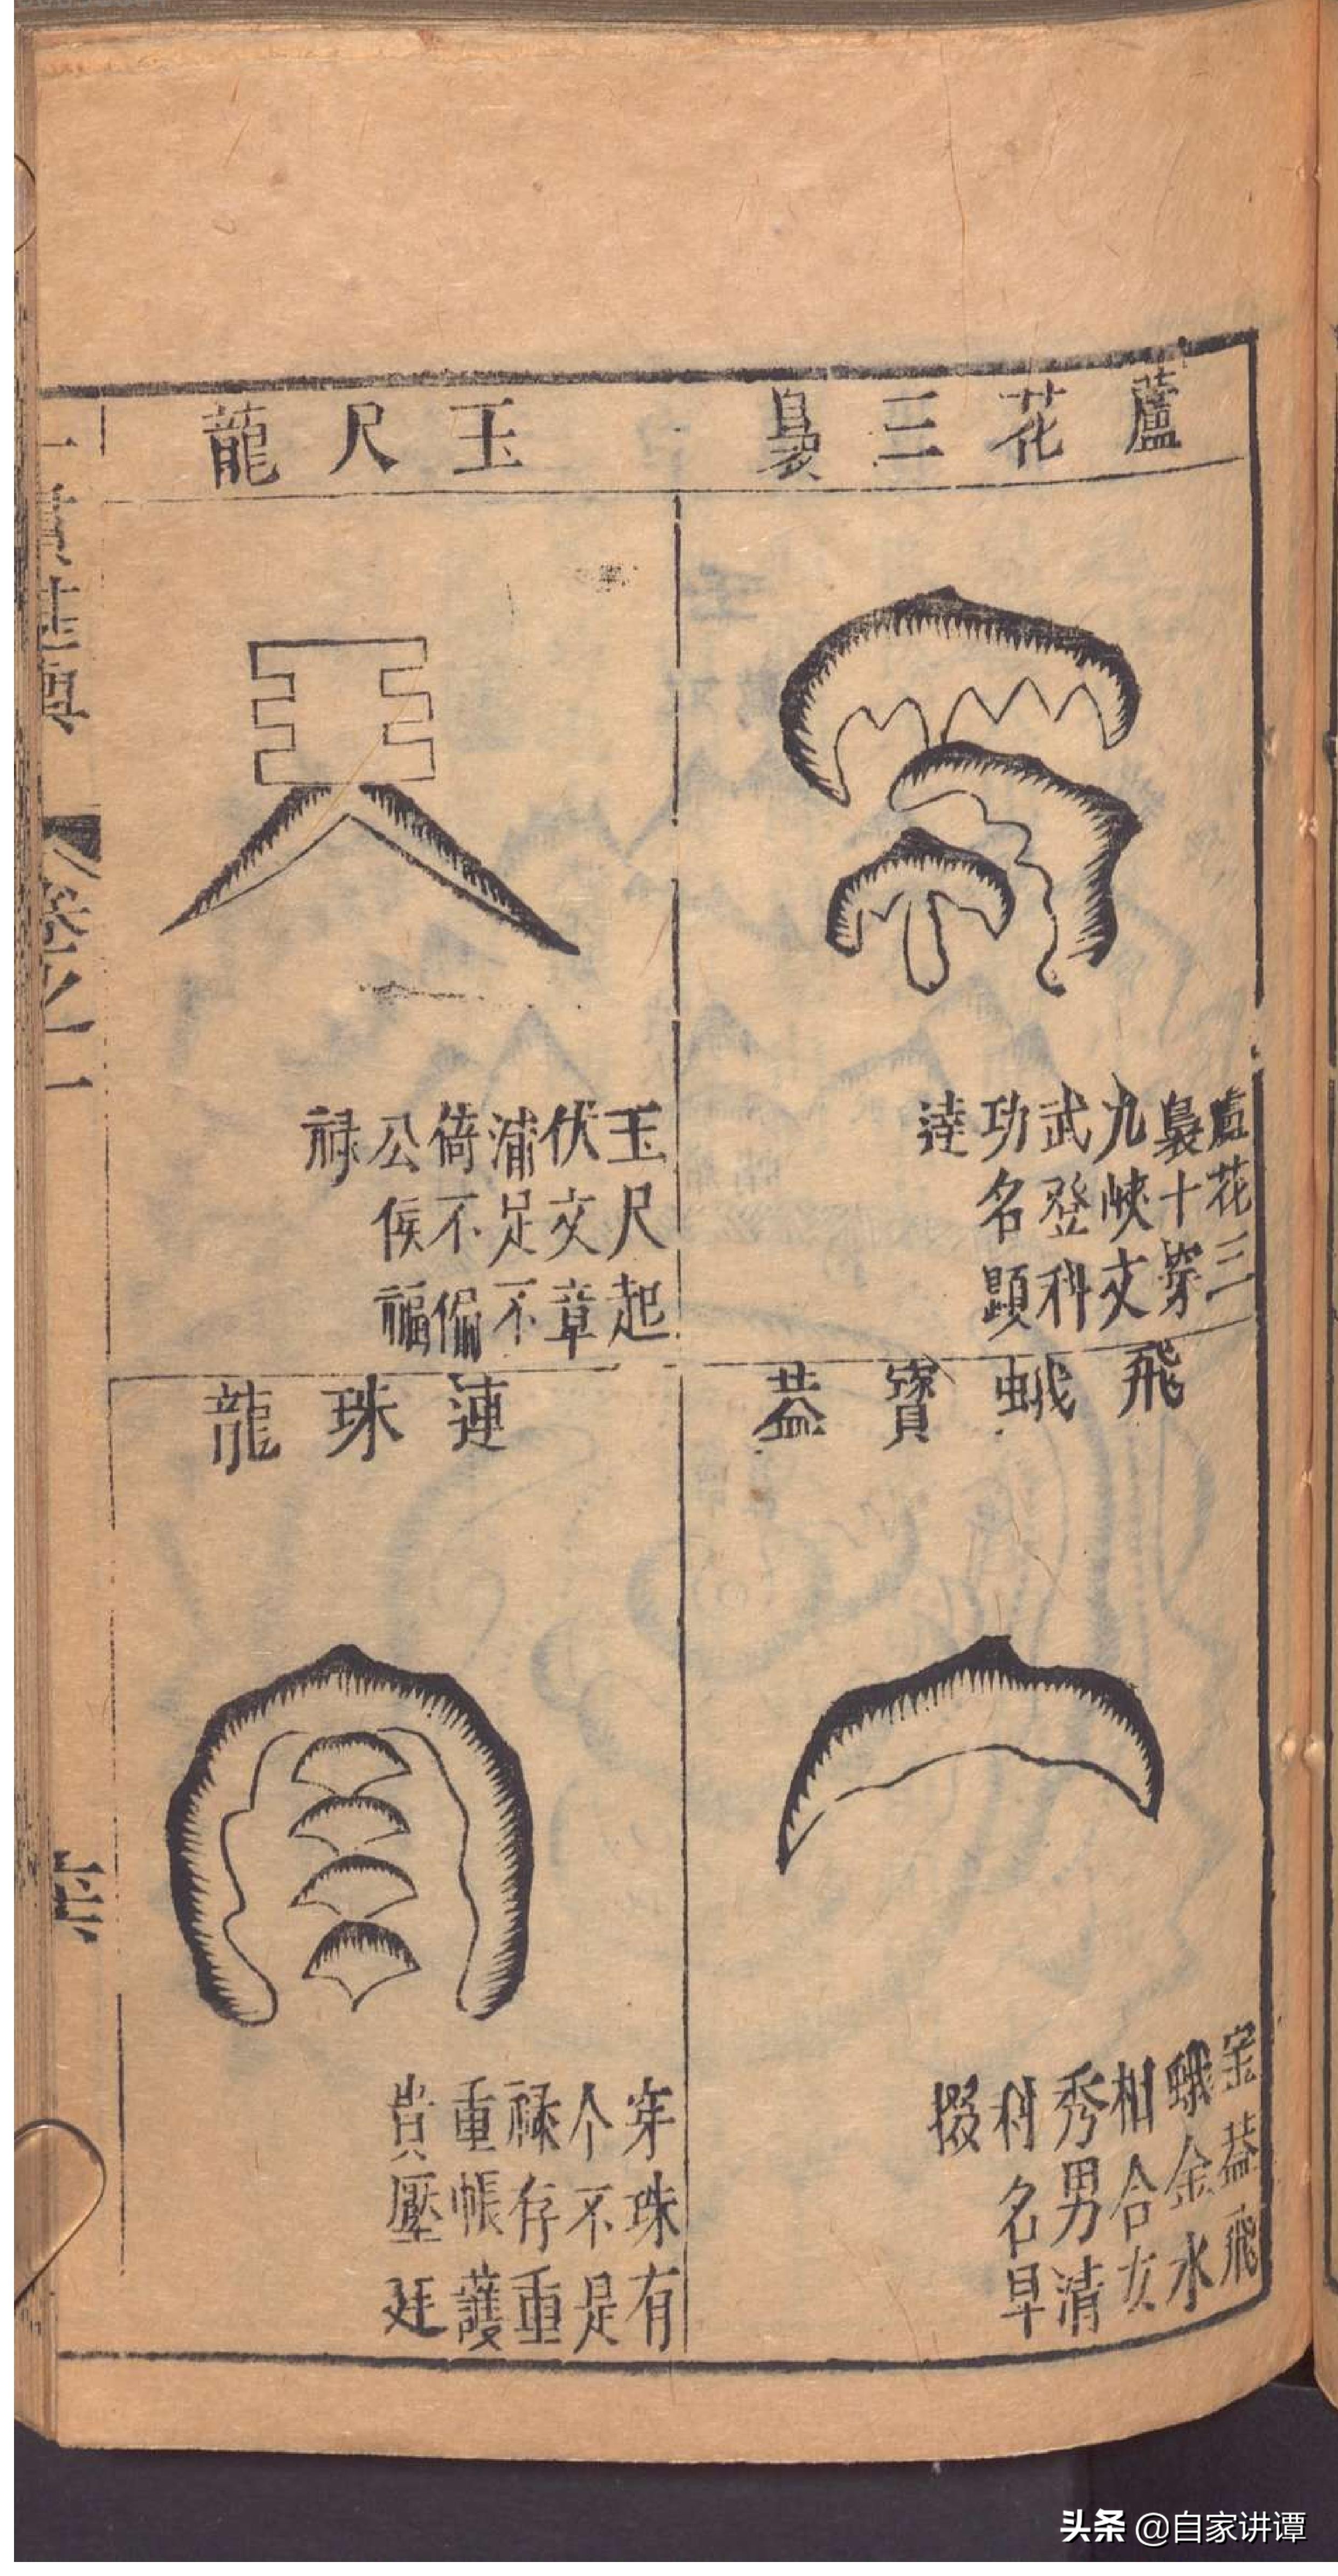 蘆花三裊
蘆花三
裊十穿
九峽文
武登科
功名顕
達
玉尺龍
玉尺起
伏文章
浦足不
倚不偏
公侯福
禄
飛蛾寳葢
宝葢飛
蛾金水
相合女
秀男清
科名早
掇
連珠龍
穿珠有
个不是
禄存重
重帳護
貴壓廷
卷之一
头条 @自家讲谭